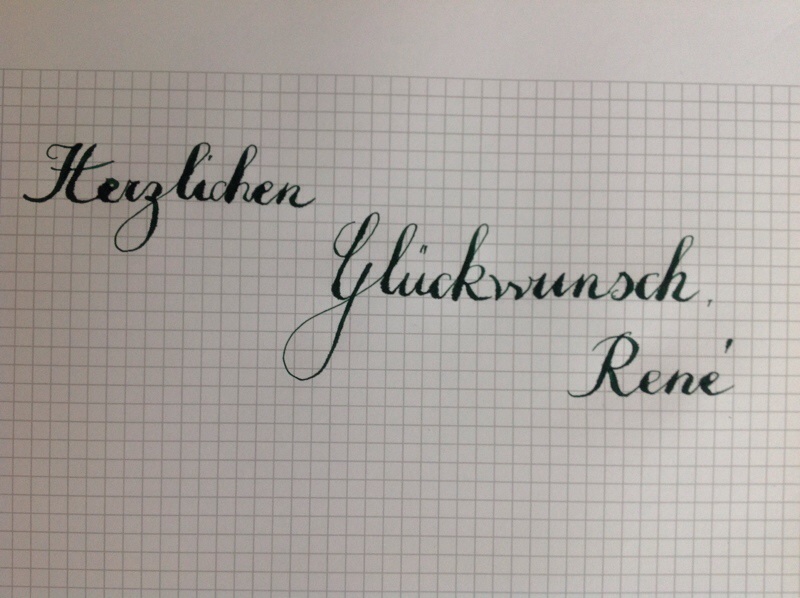 Herzlichen
Glückwunsch,
René